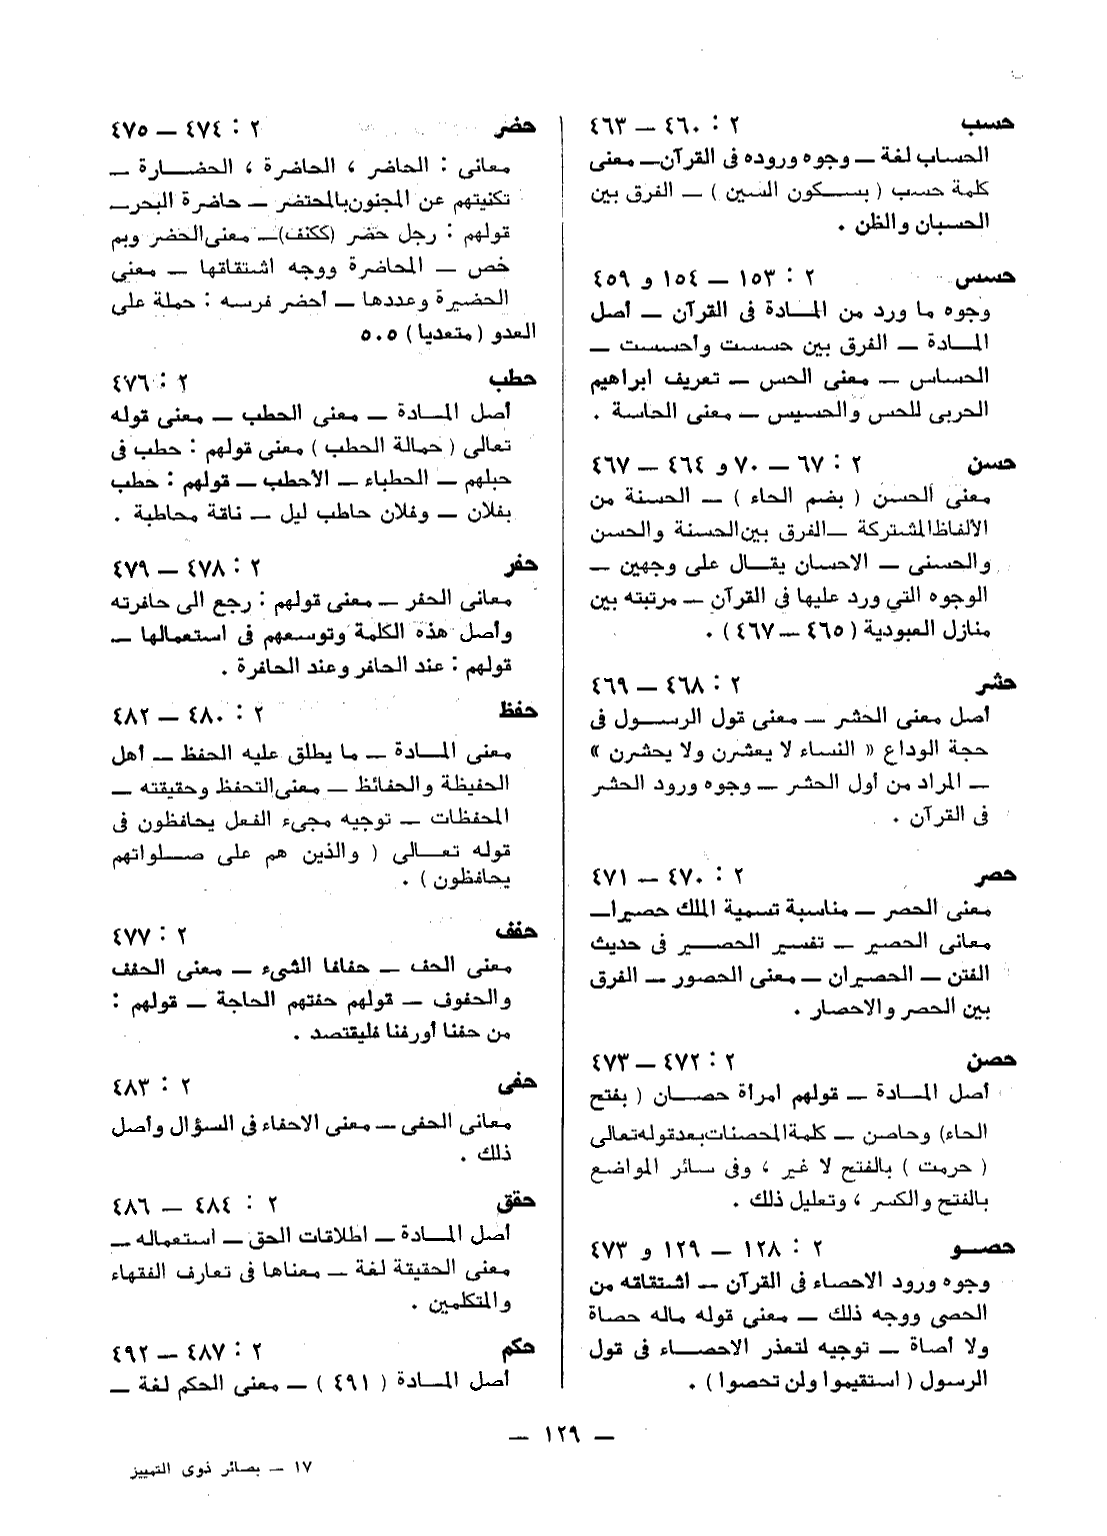 حسب ٢ : ٤٦٠ — ٤٦٣
الحساب لغة — وجوه وروده فى القرآن — معنى
كلمة حسب ( بسكون السين ) — الفرق بين
الحسبان والظن .
حسس ٢ : ١٥٣ — ١٥٤ و ٤٥٩
وجوه ما ورد من المادة فى القرآن — أصل
المادة — الفرق بين حسست وأحسست —
الحساس — معنى الحس — تعريف ابراهيم
الحربى للحس والحسيس — معنى الحاسة .
حسن ٢ : ٦٧ — ٧٠ و ٤٦٤ — ٤٦٧
معنى الحسن ( بضم الحاء ) — الحسنة من
الألفاظ المشتركة — الفرق بين الحسنة والحسن
والحسنى — الاحسان يقال على وجهين —
الوجوه التي ورد عليها فى القرآن — مرتبته بين
منازل العبودية ( ٤٦٥ — ٤٦٧ ) .
حشر ٢ : ٤٦٨ — ٤٦٩
أصل معنى الحشر — معنى قول الرسول فى
حجة الوداع « النساء لا يعشرن ولا يحشرن »
— المراد من أول الحشر — وجوه ورود الحشر
فى القرآن .
حصر ٢ : ٤٧٠ — ٤٧١
معنى الحصر — مناسبة تسمية الملك حصيرا —
معانى الحصير — تفسير الحصير فى حديث
الفتن — الحصيران — معنى الحصور — الفرق
بين الحصر والاحصار .
حصن ٢ : ٤٧٢ — ٤٧٣
أصل المادة — قولهم امرأة حصان ( بفتح
الحاء ) وحاصن — كلمة المحصنات بعد قوله تعالى
( حرمت ) بالفتح لا غير ، وفى سائر المواضع
بالفتح والكسر ، وتعليل ذلك .
حصو ٢ : ١٢٨ — ١٢٩ و ٤٧٣
وجوه ورود الاحصاء فى القرآن — اشتقاقه من
الحصى ووجه ذلك — معنى قوله ماله حصاة
ولا أصاة — توجيه لتعذر الاحصاء فى قول
الرسول ( استقيموا ولن تحصوا ) .
حضر ٢ : ٤٧٤ — ٤٧٥
معانى : الحاضر ، الحاضرة ، الحضارة —
تكنيتهم عن المجنون بالمحتضر — حاضرة البحر —
قولهم : رجل حضر ( ككنف ) — معنى الحضر وبم
خص — المحاضرة ووجه اشتقاقها — معنى
الحضيرة وعددها — أحضر فرسه : حملة على
العدو ( متعديا ) ٥٠٥
حطب ٢ : ٤٧٦
أصل المادة — معنى الحطب — معنى قوله
تعالى ( حمالة الحطب ) معنى قولهم : حطب فى
حبلهم — الحطباء — الأحطب — قولهم : حطب
بفلان — وفلان حاطب ليل — ناقة محاطبة .
حفر ٢ : ٤٧٨ — ٤٧٩
معانى الحفر — معنى قولهم : رجع الى حافرته
وأصل هذه الكلمة وتوسعهم فى استعمالها —
قولهم : عند الحافر وعند الحافرة .
حفظ ٢ : ٤٨٠ — ٤٨٢
معنى المادة — ما يطلق عليه الحفظ — أهل
الحفيظة والحفائظ — معنى التحفظ وحقيقته —
المحفظات — توجيه مجىء الفعل يحافظون فى
قوله تعالى ( والذين هم على صلواتهم
يحافظون ) .
حفف ٢ : ٤٧٧
معنى الحف — حفافا الشىء — معنى الحفف
والحفوف — قولهم حفتهم الحاجة — قولهم :
من حفنا أورفنا فليقتصد .
حفى ٢ : ٤٨٣
معانى الحفى — معنى الاحفاء فى السؤال وأصل
ذلك .
حقق ٢ : ٤٨٤ — ٤٨٦
أصل المادة — اطلاقات الحق — استعماله —
معنى الحقيقة لغة — معناها فى تعارف الفقهاء
والمتكلمين .
حكم ٢ : ٤٨٧ — ٤٩٢
أصل المادة ( ٤٩١ ) — معنى الحكم لغة —
— ١٢٩ —
١٧ — بصائر ذوى التمييز